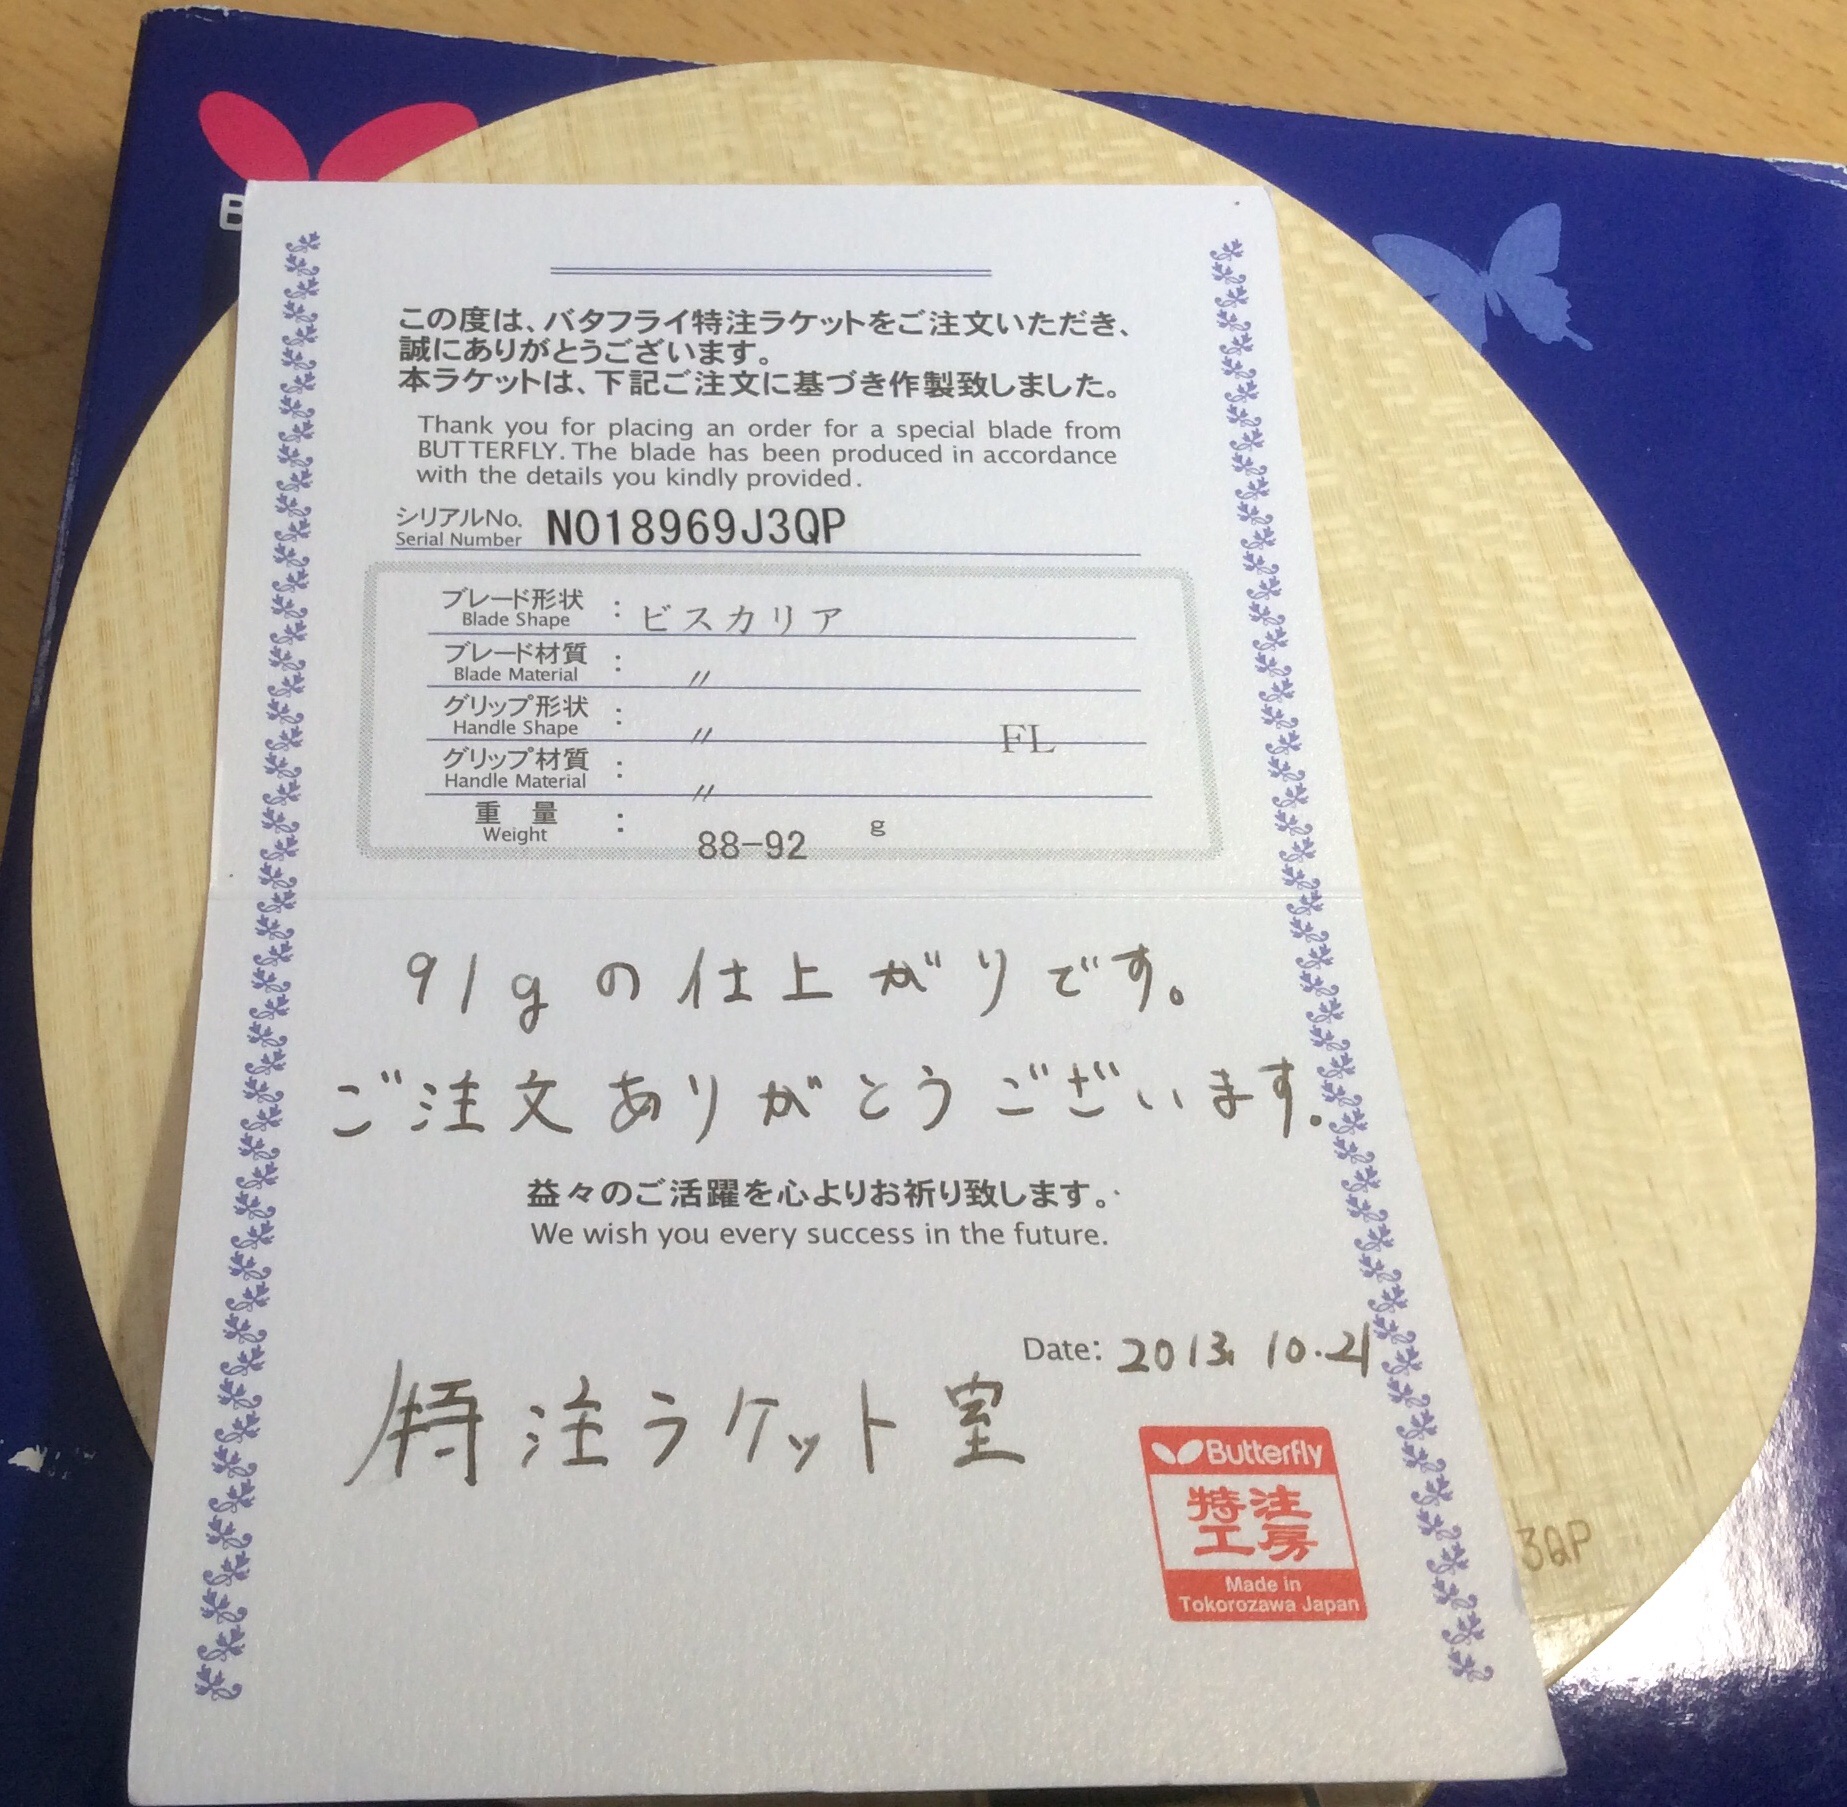 B
この度は、バタフライ特注ラケットをご注文いただき、
誠にありがとうございます。
本ラケットは、下記ご注文に基づき作製致しました。
Thank you for placing an order for a special blade from
BUTTERFLY. The blade has been produced in accordance
with the details you kindly provided.
シリアルNo.
Serial Number
N018969J3QP
ブレード形状
Blade Shape
: ビスカリア
ブレード材質
Blade Material
: 〃
グリップ形状
Handle Shape
: 〃 FL
グリップ材質
Handle Material
: 〃
重 量
Weight
: 88-92 g
91gの仕上がりです。
ご注文ありがとうございます.
益々のご活躍を心よりお祈り致します。
We wish you every success in the future.
Date: 2013. 10.21
特注ラケット室
Butterfly
特注
工房
Made in
Tokorozawa Japan
3QP